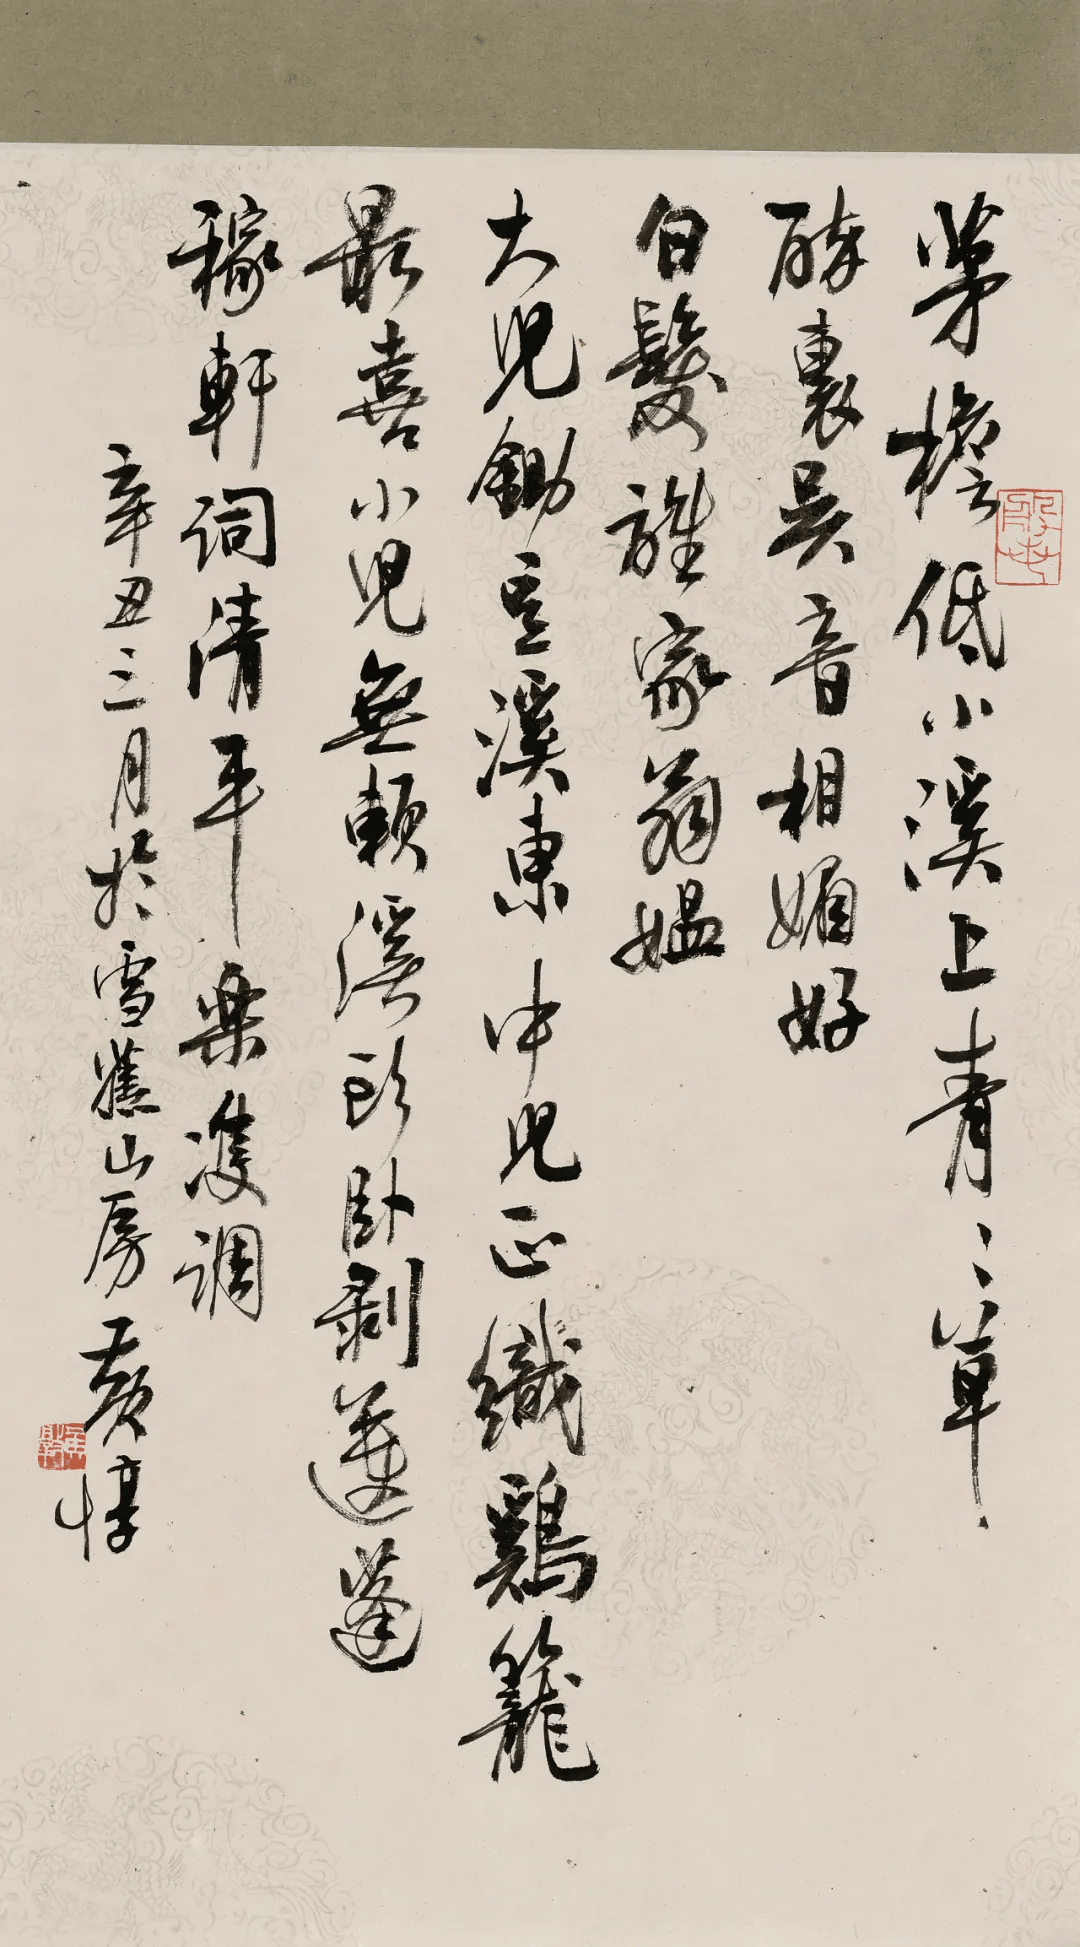 茅檐低小溪上青〻草
醉裏吳音相媚好
白髮誰家翁媼
大兒鋤豆溪東中兒正織鷄籠
最喜小兒無賴溪頭臥剥蓮蓬
稼軒詞清平樂雙調
辛丑三月於雪舊山房黃惇